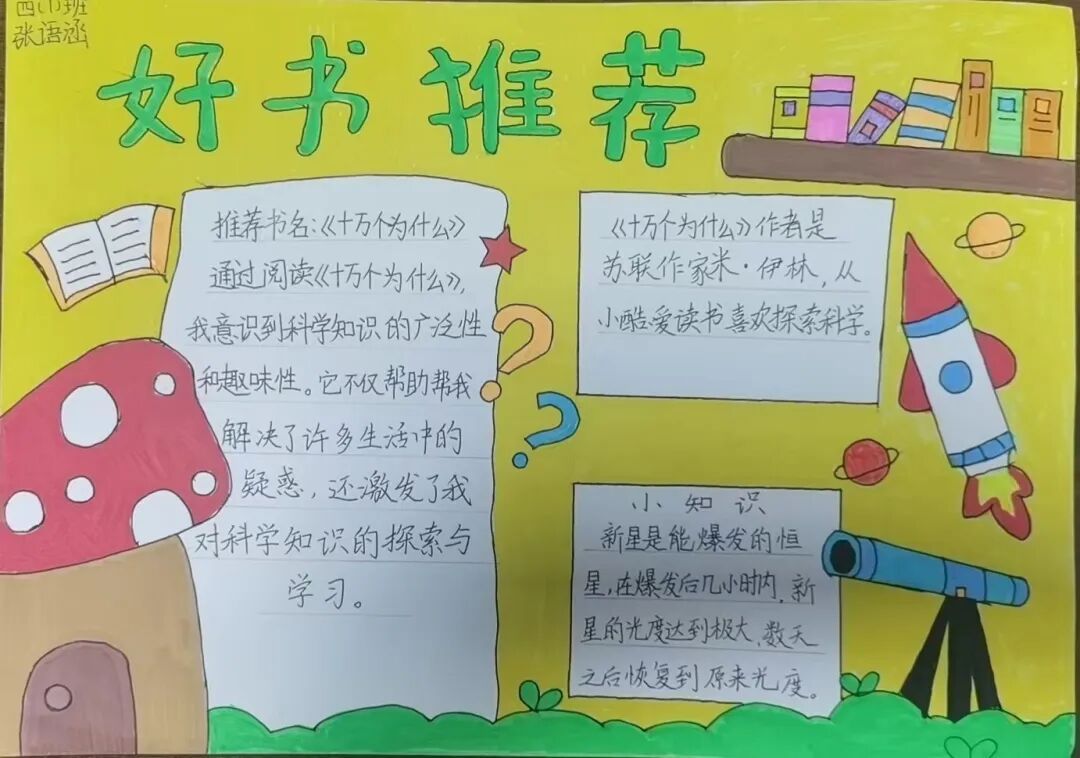 四(1)班
张语涵
好书推荐
推荐书名:《十万个为什么》
通过阅读《十万个为什么》,
我意识到科学知识的广泛性
和趣味性。它不仅帮助帮我
解决了许多生活中的
疑惑，还激发了我
对科学知识的探索与
学习。
《十万个为什么》作者是
苏联作家米·伊林，从
小酷爱读书喜欢探索科学。
小知识
新星是能爆发的恒
星，在爆发后几小时内，新
星的光度达到极大、数天
之后恢复到原来光度。